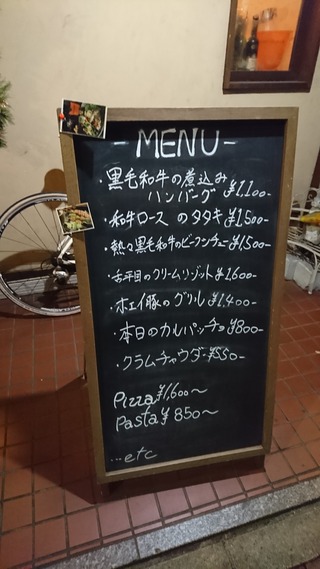 -MENU-
・黒毛和牛の煮込み
ハンバーグ ¥1,100-
・和牛ロースのタタキ ¥1,500-
・熱々黒毛和牛のビーフシチュー ¥1,500-
・舌平目のクリームリゾット ¥1,600-
・ホエイ豚のグリル ¥1,400-
・本日のカルパッチョ ¥800-
・クラムチャウダー ¥550-
Pizza ¥1,600〜
Pasta ¥850〜
...etc